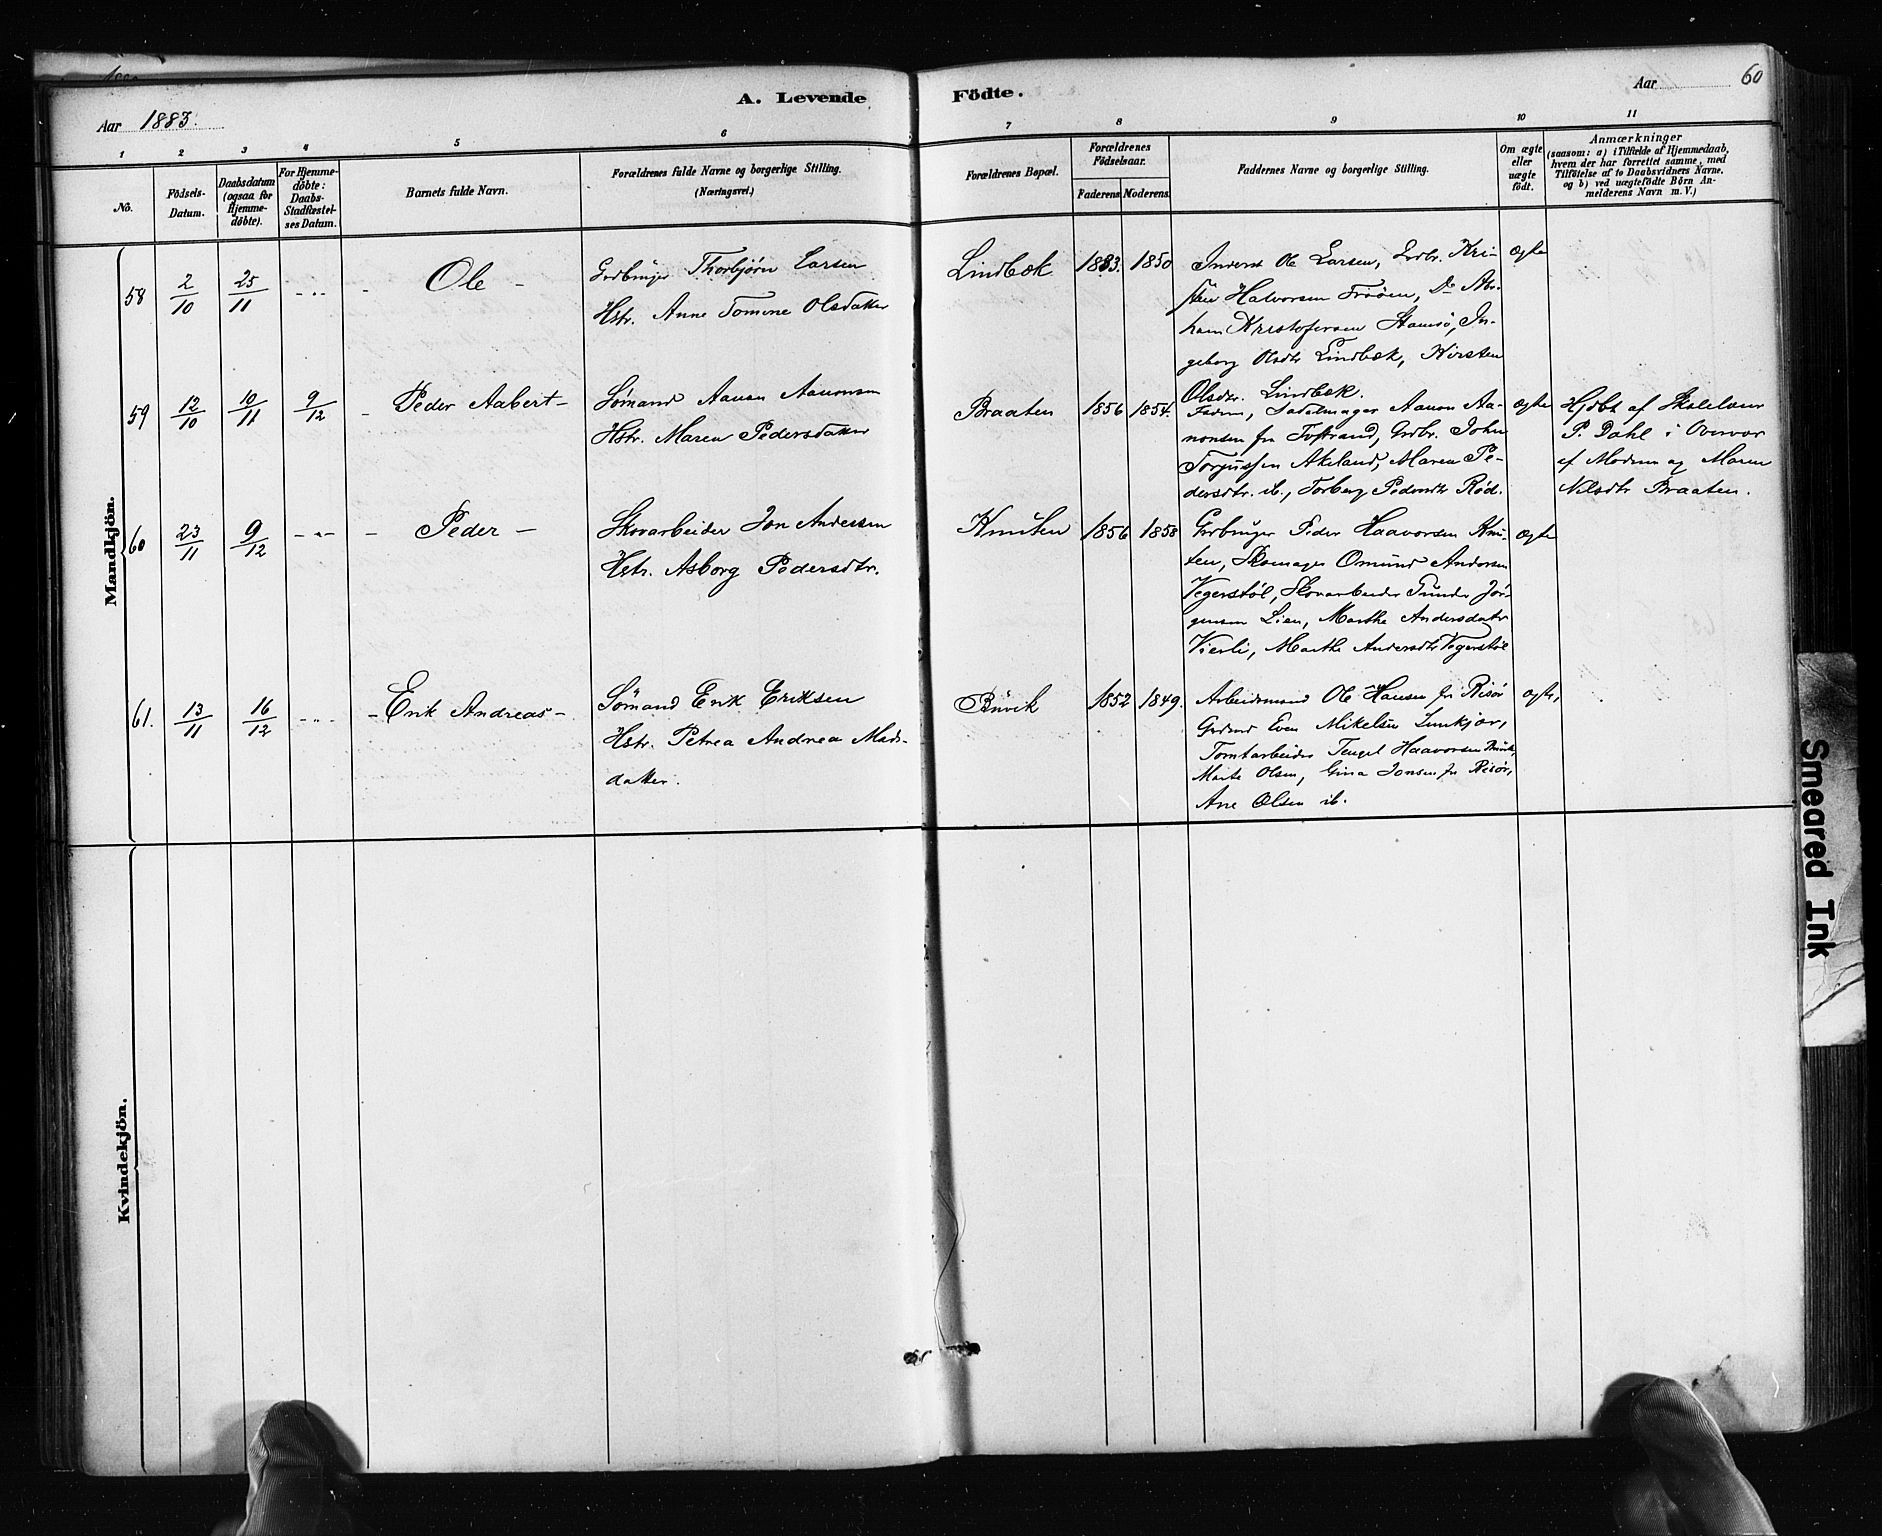 60
A. Levende Födte.
Aar 1883.
Aar
1 2 3 4 5 6 7 8 9 10 11
No.
Födsels-
Datum.
Daabsdatum
(ogsaa for
Hjemme-
döbte).
For Hjemme-
döbte:
Daabs-
Stadfæstel-
ses Datum.
Barnets fulde Navn.
Forældrenes fulde Navne og borgerlige Stilling.
(Næringsvei.)
Forældrenes Bopæl.
Forældrenes
Födselsaar.
Faderens Moderens.
Faddernes Navne og borgerlige Stilling.
Om ægte
eller
uægte
födt.
Anmærkninger
(saasom: a) i Tilfælde af Hjemmedaab,
hvem der har forrettet samme, med
Tilföielse af to Daabsvidners Navne.
og b) ved uægtefödte Börn An-
melderens Navn m. V.)
Mandkjön.
58
2/10
25/11
Ole
Thorbjörn Larsen
Hstr. Anne Tomine Olsdatter
Lindbæk
1883. 1850
Inderst Ole Larsen, Grdbr. Kri-
sten Halvorsen Do Abr-
ham Kristofersen In-
geborg Olsdtr Lindbæk, Kirsten
Olsdtr. Lindbæk.
ægte
59
12/10
10/11
9/12
Peder Aabert
Sømand Aanon Aanonsen
Hstr. Maren Pedersdatter
Braaten
1856 1854.
Faderen, Sadelmager Aanon Aa-
nonsen fra Grdbr. John
Torjussen Akeland, Maren Pe-
dersdtr. ib., Torborg Pedersdtr Röd.
ægte
Hjdbt af Skolelærer
P. Dahl i Overvær
af Moderen og Maren
Nilsdtr Braaten.
60
23/11
9/12
Peder
Skovarbeider Jon Andersen
Hstr. Asborg Pedersdtr.
Knuten
1856 1858
Grdbruger Peder Haavorsen Knu-
ten, Skomager Omund Andersen
Vegerstöl, Skovarbeider Gunder Jör-
gensen Lien, Marthe Andersdatr
Vierli, Marthe Andersdtr Vegerstöl
ægte
61.
13/11
16/12
Erik Andreas
Sømand Erik Eriksen
Hstr. Petrea Andrea Mads-
datter.
1852 1849.
Arbeidsmand Ole Hansen fr Risör
Even Mikelsen
Tomtarbeider Tengel Haavorsen
Marte Olsen, Gina Jonsen fr Risör,
Ane Olsen ib.
ægte,
Kvindekjön.
Smeared Ink